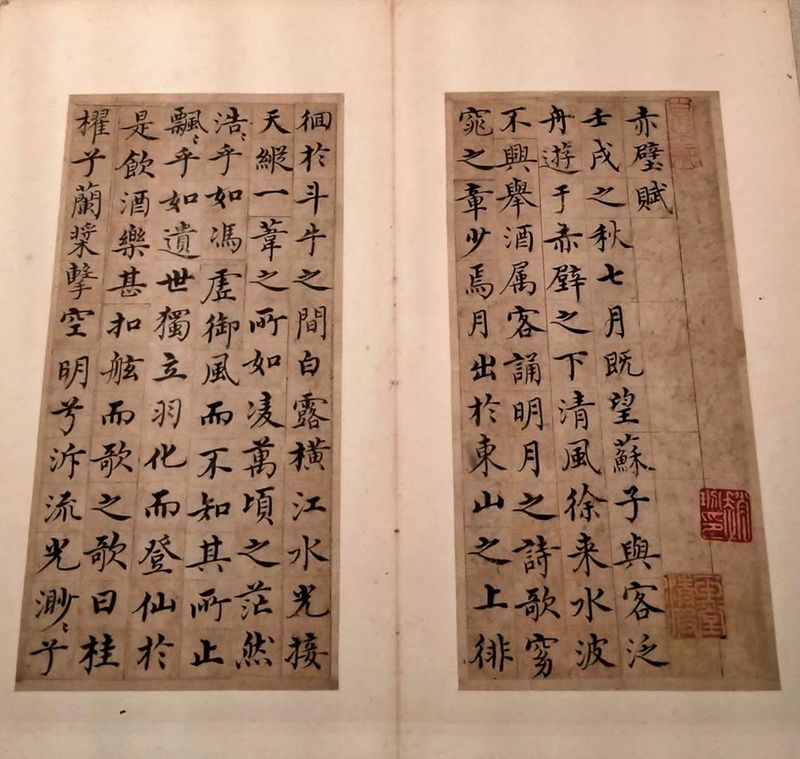 赤壁賦
壬戌之秋七月既望蘇子與客泛
舟遊于赤壁之下清風徐来水波
不興舉酒属客誦明月之詩歌窈
窕之章少焉月出於東山之上徘
徊於斗牛之間白露横江水光接
天縱一葦之所如凌萬頃之茫然
浩〻乎如馮虚御風而不知其所止
飄〻乎如遺世獨立羽化而登仙於
是飲酒樂甚扣舷而歌之歌曰桂
櫂兮蘭槳擊空明兮泝流光渺〻兮